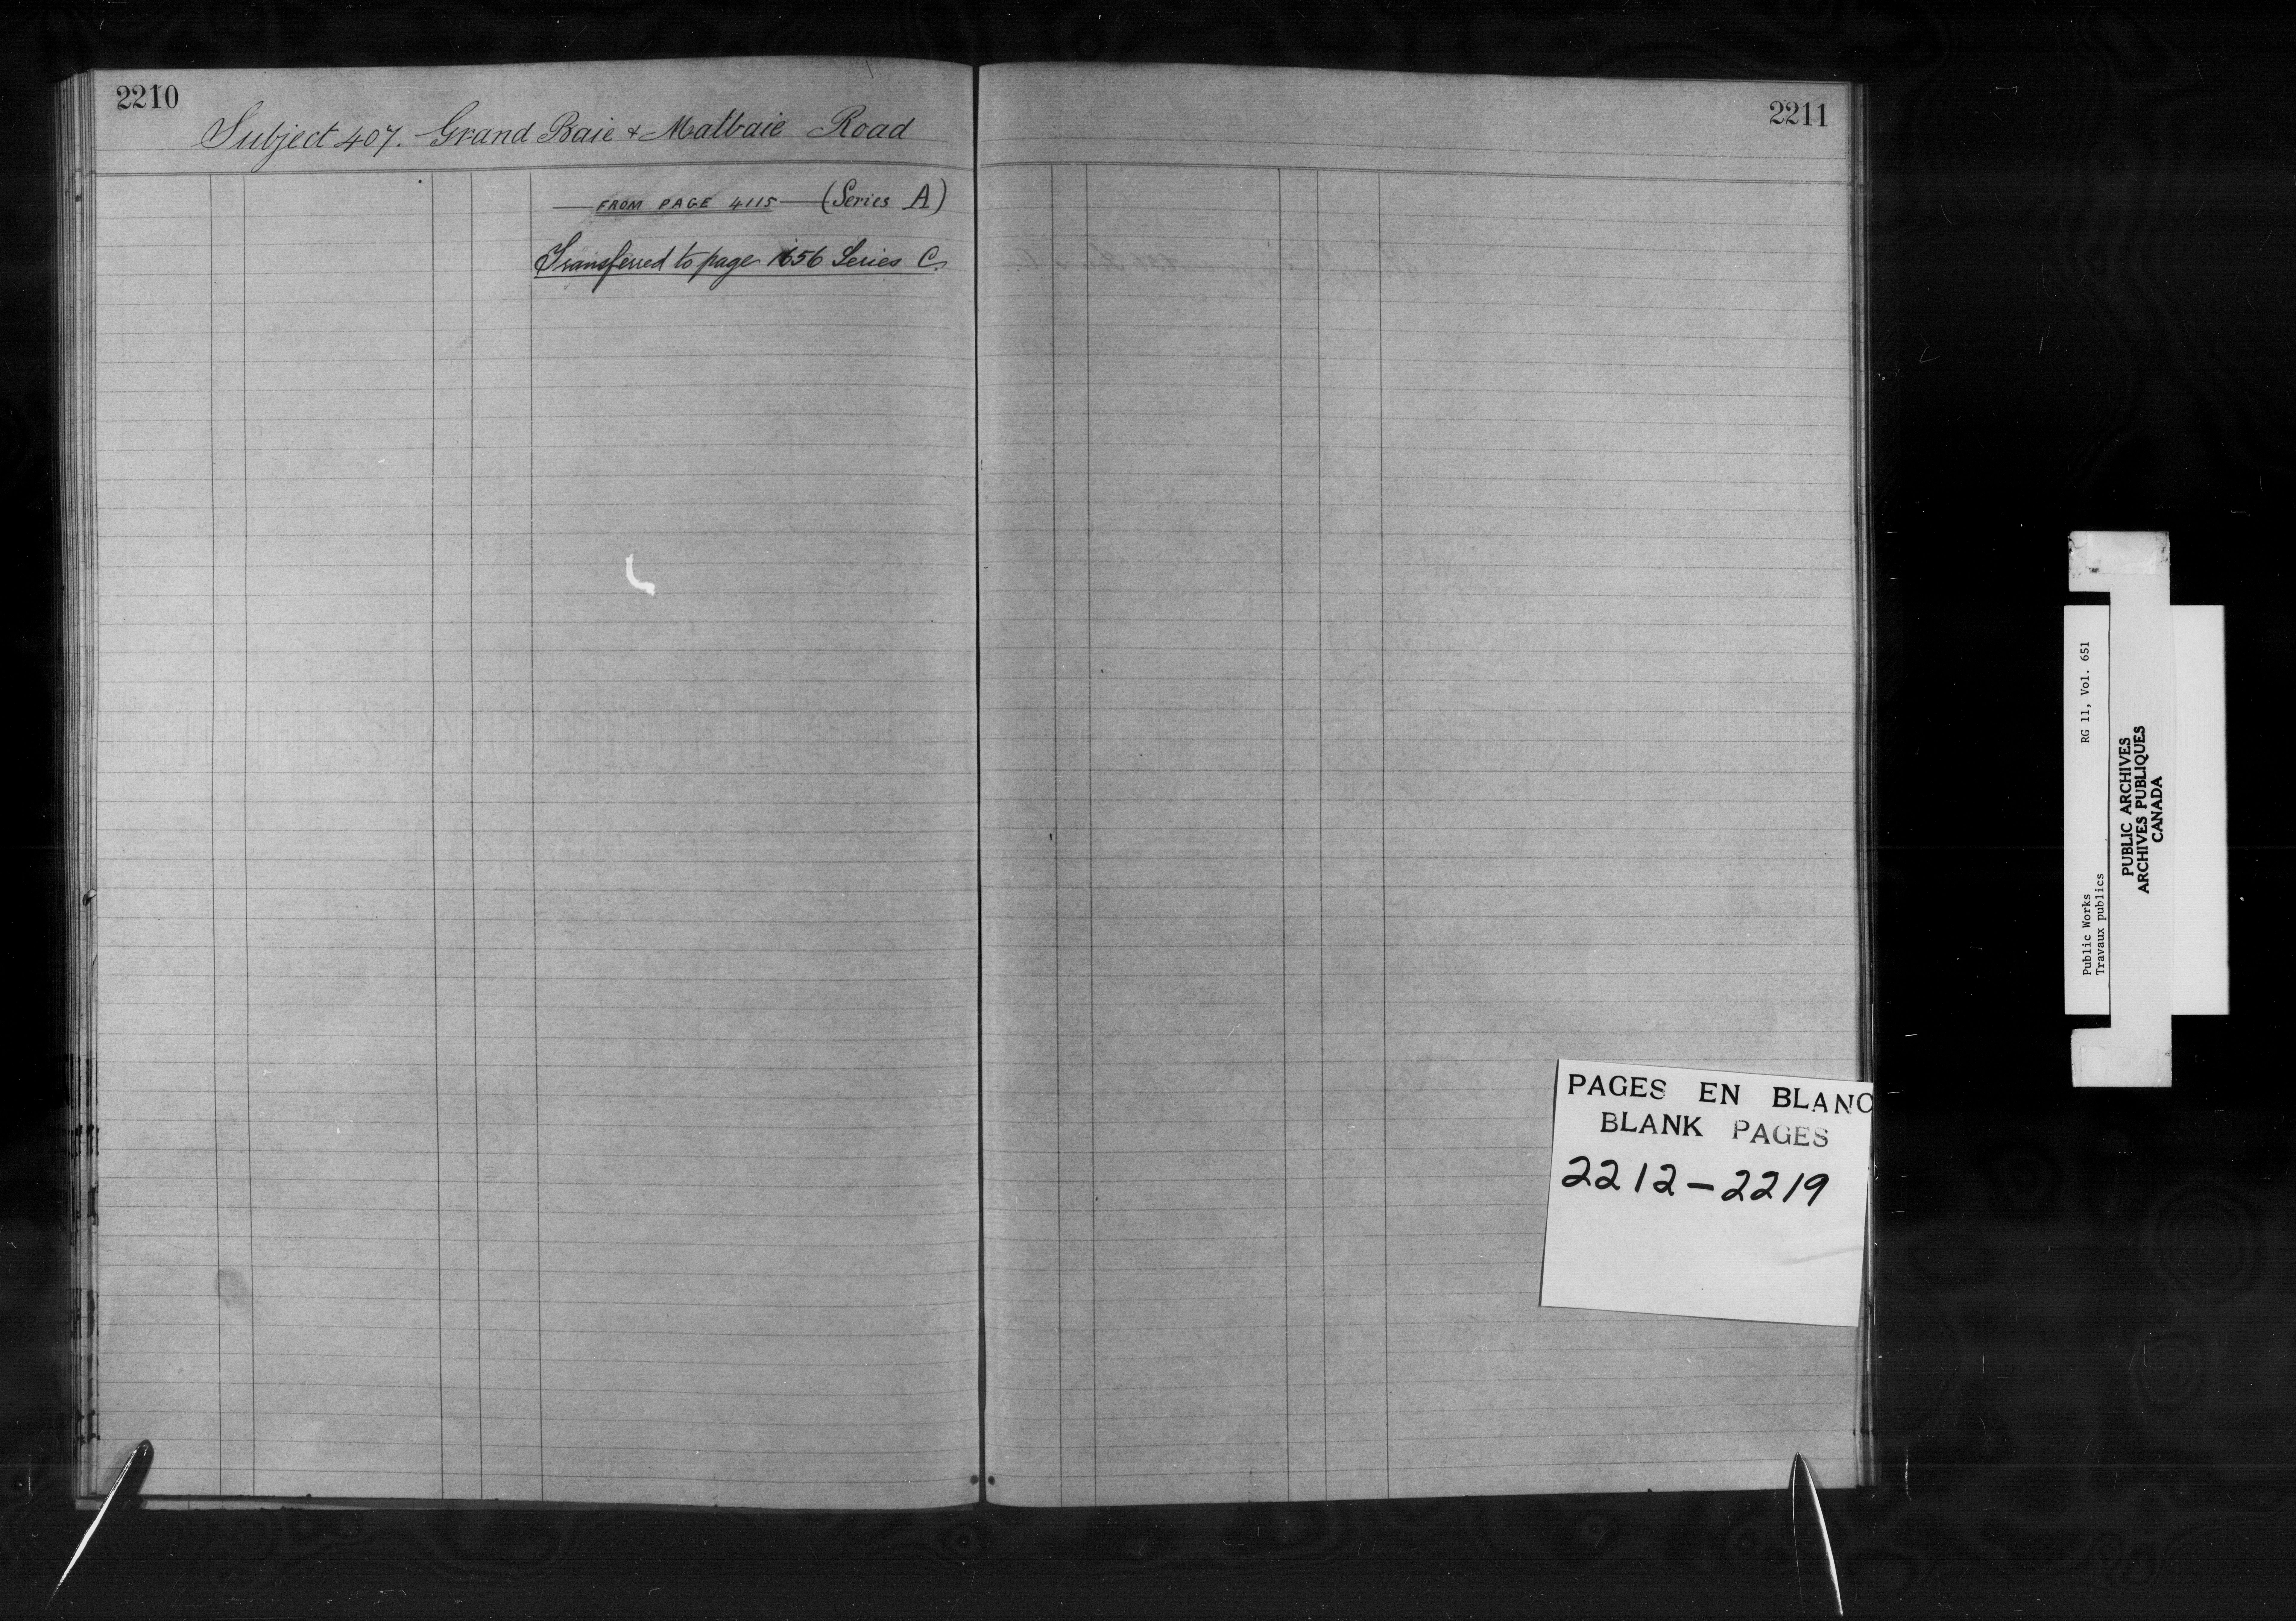 2210
Subject 407. Grand Baie & Malbaie Road
FROM PAGE 4115 (Series A)
Transferred to page 1656 Series C.
2211
PAGES EN BLANC
BLANK PAGES
2212-2219
Public Works RG 11, Vol. 651
Travaux publics
PUBLIC ARCHIVES
ARCHIVES PUBLIQUES
CANADA